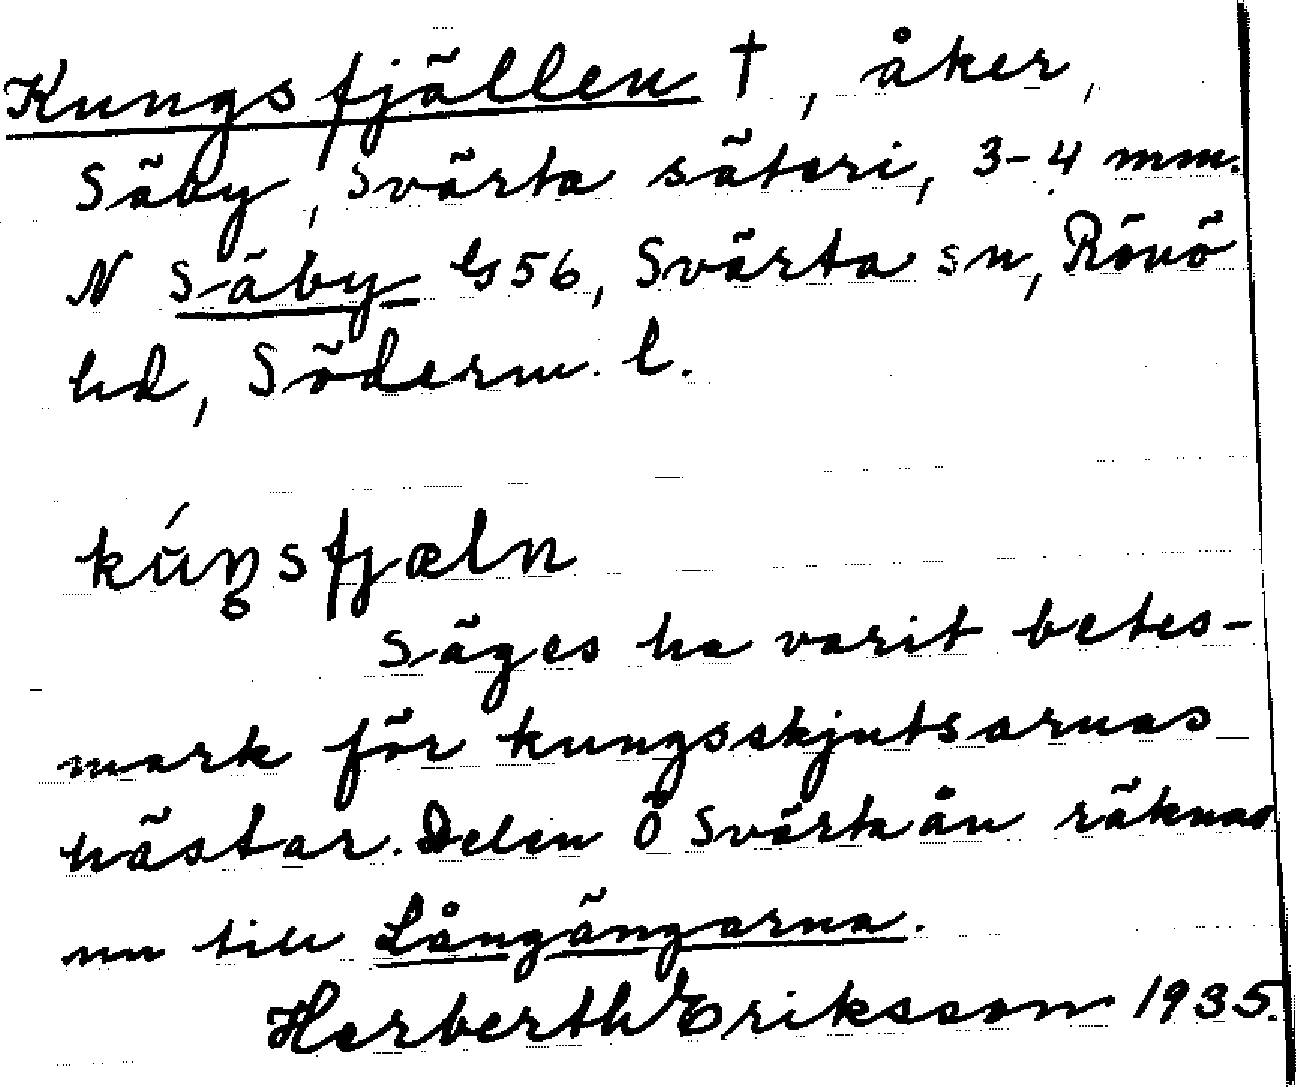 Kungsfjällen †, åker,
Säby, Svärta säteri, 3-4 mm.
N Säby G56, Svärta sn, Rönö
hd, Söderm. l.
kúŋsfjæln
Säges ha varit betes-
mark för kungsskjutsarnas
hästar. Delen Ö Svärtaån räknas
nu till Långängarna.
Herberth Eriksson 1935.